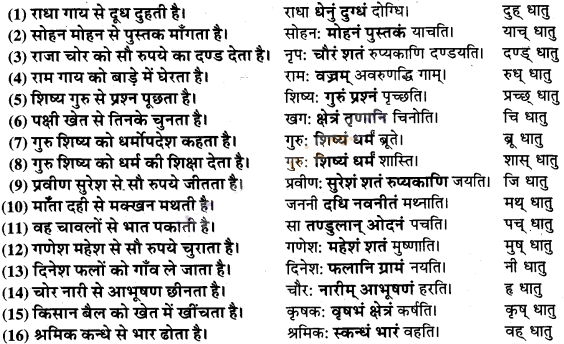 (1) राधा गाय से दूध दुहती है। राधा धेनुं दुग्धं दोग्धि। दुह् धातु
(2) सोहन मोहन से पुस्तक माँगता है। सोहनः मोहनं पुस्तकं याचति। याच् धातु
(3) राजा चोर को सौ रुपये का दण्ड देता है। नृपः चौरं शतं रुप्यकाणि दण्डयति। दण्ड् धातु
(4) राम गाय को बाड़े में घेरता है। रामः वज्रम् अवरुणद्धि गाम्। रुध् धातु
(5) शिष्य गुरु से प्रश्न पूछता है। शिष्यः गुरुं प्रश्नं पृच्छति। प्रच्छ् धातु
(6) पक्षी खेत से तिनके चुनता है। खगः क्षेत्रं तृणानि चिनोति। चि धातु
(7) गुरु शिष्य को धर्मोपदेश कहता है। गुरुः शिष्यं धर्मं ब्रूते। ब्रू धातु
(8) गुरु शिष्य को धर्म की शिक्षा देता है। गुरुः शिष्यं धर्मं शास्ति। शास् धातु
(9) प्रवीण सुरेश से सौ रुपये जीतता है। प्रवीणः सुरेशं शतं रुप्यकाणि जयति। जि धातु
(10) माँता दही से मक्खन मथती है। जननी दधि नवनीतं मथ्नाति। मथ् धातु
(11) वह चावलों से भात पकाती है। सा तण्डुलान् ओदनं पचति। पच् धातु
(12) गणेश महेश से सौ रुपये चुराता है। गणेशः महेशं शतं मुष्णाति। मुष् धातु
(13) दिनेश फलों को गाँव ले जाता है। दिनेशः फलानि ग्रामं नयति। नी धातु
(14) चोर नारी से आभूषण छीनता है। चौरः नारीम् आभूषणं हरति। हृ धातु
(15) किसान बैल को खेत में खींचता है। कृषकः वृषभं क्षेत्रं कर्षति। कृष् धातु
(16) श्रमिक कन्धे से भार ढोता है। श्रमिकः स्कन्धं भारं वहति। वह् धातु